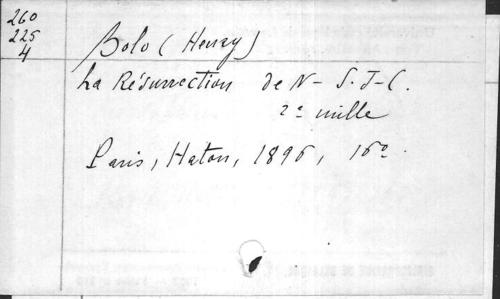 260
225
4
Bolo (Henry)
La Résurrection de N-S.J-C.
2e mille
Paris, Haton, 1896, 16o.